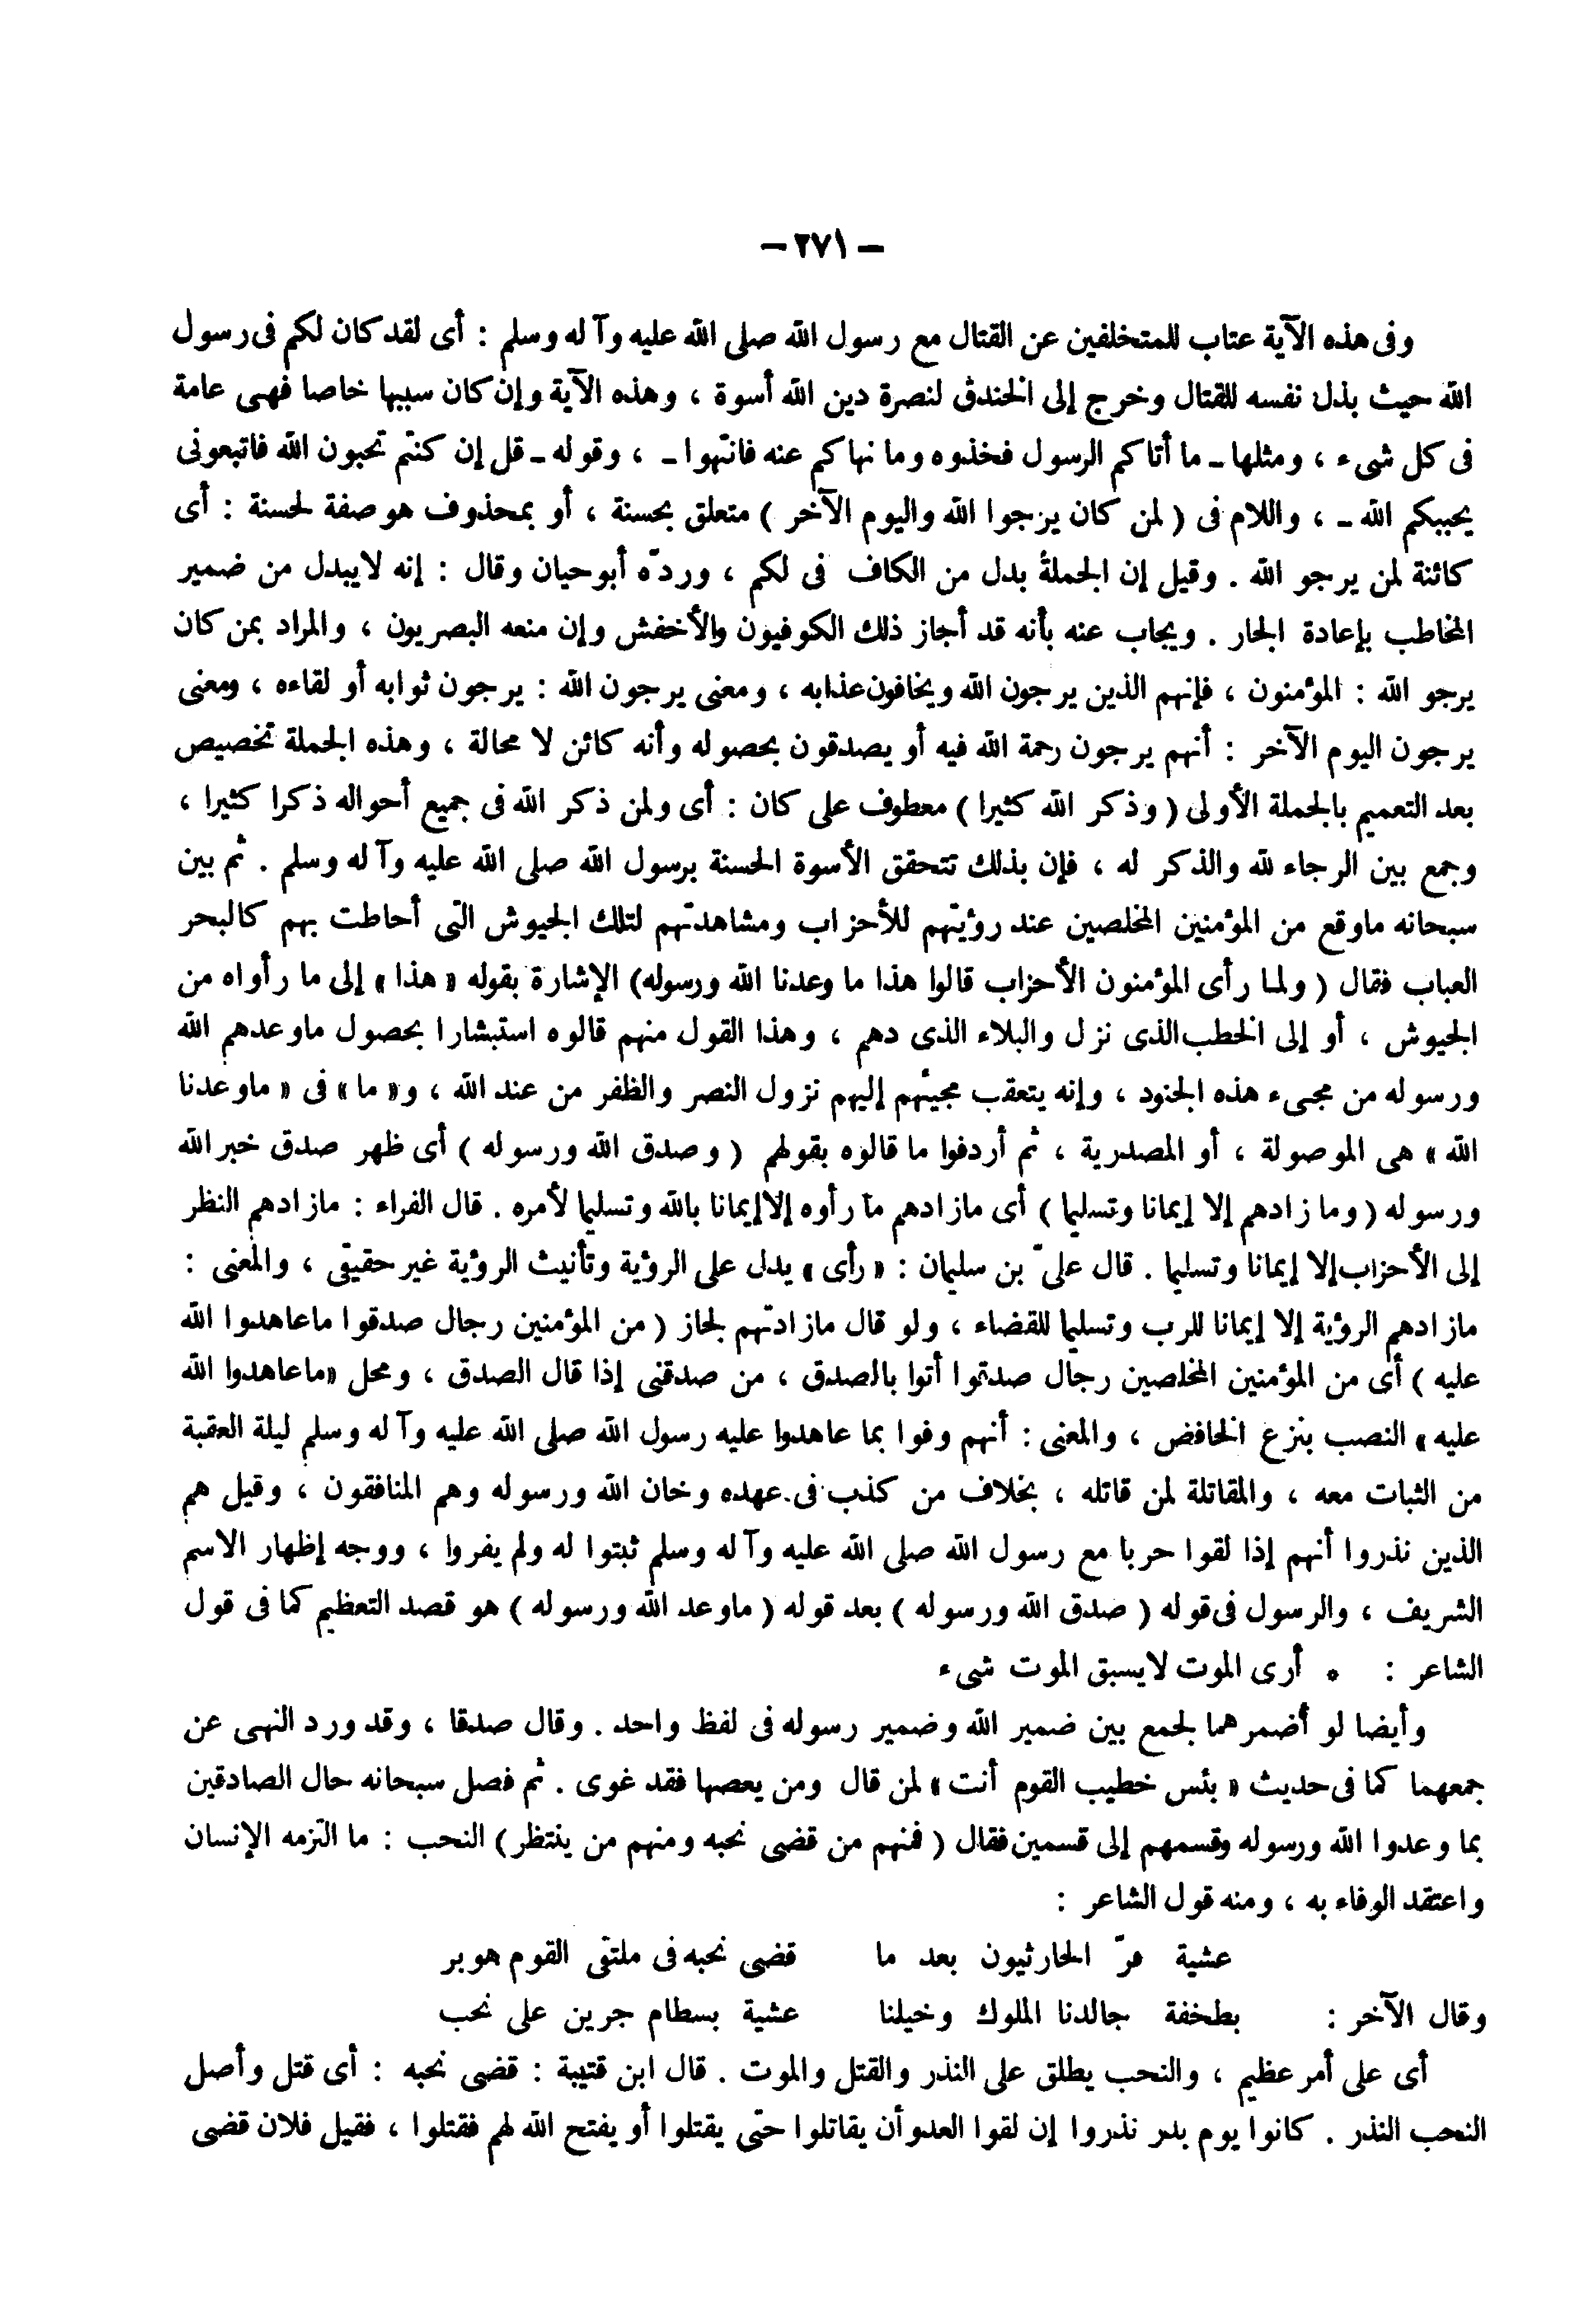 – ٢٧١ –
وفى هذه الآية عتاب للمتخلفين عن القتال مع رسول الله صلى الله عليه وآله وسلم : أى لقد كان لكم فى رسول
الله حيث بذل نفسه للقتال وخرج إلى الخندق لنصرة دين الله أسوة ، وهذه الآية وإن كان سببها خاصا فهى عامة
فى كل شىء ، ومثلها ـ ما أتاكم الرسول فخذوه وما نهاكم عنه فانتهوا ـ ، وقوله ـ قل إن كنتم تحبون الله فاتبعونى
يحببكم الله ـ ، واللام فى ( لمن كان يرجوا الله واليوم الآخر ) متعلق بحسنة ، أو بمحذوف هو صفة لحسنة : أى
كائنة لمن يرجو الله . وقيل إن الجملة بدل من الكاف فى لكم ، وردّه أبو حيان وقال : إنه لا يبدل من ضمير
المخاطب بإعادة الجار . ويجاب عنه بأنه قد أجاز ذلك الكوفيون والأخفش وإن منعه البصريون ، والمراد بمن كان
يرجو الله : المؤمنون ، فإنهم الذين يرجون الله ويخافون عذابه ، ومعنى يرجون الله : يرجون ثوابه أو لقاءه ، ومعنى
يرجون اليوم الآخر : أنهم يرجون رحمة الله فيه أو يصدقون بحصوله وأنه كائن لا محالة ، وهذه الجملة تخصيص
بعد التعميم بالجملة الأولى ( وذكر الله كثيرا ) معطوف على كان : أى ولمن ذكر الله فى جميع أحواله ذكرا كثيرا ،
وجمع بين الرجاء لله والذكر له ، فإن بذلك تتحقق الأسوة الحسنة برسول الله صلى الله عليه وآله وسلم . ثم بين
سبحانه ماوقع من المؤمنين المخلصين عند رؤيتهم للأحزاب ومشاهدتهم لتلك الجيوش التى أحاطت بهم كالبحر
العباب فقال ( ولما رأى المؤمنون الأحزاب قالوا هذا ما وعدنا الله ورسوله) الإشارة بقوله « هذا » إلى ما رأواه من
الجيوش ، أو إلى الخطب الذى نزل والبلاء الذى دهم ، وهذا القول منهم قالوه استبشارا بحصول ماوعدهم الله
ورسوله من مجىء هذه الجنود ، وإنه يتعقب مجيئهم إليهم نزول النصر والظفر من عند الله ، و« ما » فى « ماوعدنا
الله » هى الموصولة ، أو المصدرية ، ثم أردفوا ما قالوه بقولهم ( وصدق الله ورسوله ) أى ظهر صدق خبر الله
ورسوله ( وما زادهم إلا إيمانا وتسليما ) أى مازادهم ما رأوه إلا إيمانا بالله وتسليما لأمره . قال الفراء : مازادهم النظر
إلى الأحزاب إلا إيمانا وتسليما . قال علىّ بن سليمان : « رأى » يدل على الرؤية وتأنيث الرؤية غير حقيقى ، والمعنى :
مازادهم الرؤية إلا إيمانا للرب وتسليما للقضاء ، ولو قال مازادتهم لجاز ( من المؤمنين رجال صدقوا ماعاهدوا الله
عليه ) أى من المؤمنين المخلصين رجال صدقوا أتوا بالصدق ، من صدقنى إذا قال الصدق ، ومحل «ماعاهدوا الله
عليه » النصب بنزع الخافض ، والمعنى : أنهم وفوا بما عاهدوا عليه رسول الله صلى الله عليه وآله وسلم ليلة العقبة
من الثبات معه ، والمقاتلة لمن قاتله ، بخلاف من كذب فى عهده وخان الله ورسوله وهم المنافقون ، وقيل هم
الذين نذروا أنهم إذا لقوا حربا مع رسول الله صلى الله عليه وآله وسلم ثبتوا له ولم يفروا ، ووجه إظهار الاسم
الشريف ، والرسول فى قوله ( صدق الله ورسوله ) بعد قوله ( ماوعد الله ورسوله ) هو قصد التعظيم كما فى قول
الشاعر : * أرى الموت لا يسبق الموت شىء
وأيضا لو أضمرهما لجمع بين ضمير الله وضمير رسوله فى لفظ واحد . وقال صدقا ، وقد ورد النهى عن
جمعهما كما فى حديث « بئس خطيب القوم أنت » لمن قال ومن يعصها فقد غوى . ثم فصل سبحانه حال الصادقين
بما وعدوا الله ورسوله وقسمهم إلى قسمين فقال ( فمنهم من قضى نحبه ومنهم من ينتظر) النحب : ما التزمه الإنسان
واعتقد الوفاء به ، ومنه قول الشاعر :
عشية فرّ الحارثيون بعد ما قضى نحبه فى ملتقى القوم هوبر
وقال الآخر : بطخفة جالدنا الملوك وخيلنا عشية بسطام جرين على نحب
أى على أمر عظيم ، والنحب يطلق على النذر والقتل والموت . قال ابن قتيبة : قضى نحبه : أى قتل وأصل
النحب النذر . كانوا يوم بدر نذروا إن لقوا العدو أن يقاتلوا حتى يقتلوا أو يفتح الله لهم فقتلوا ، فقيل فلان قضى